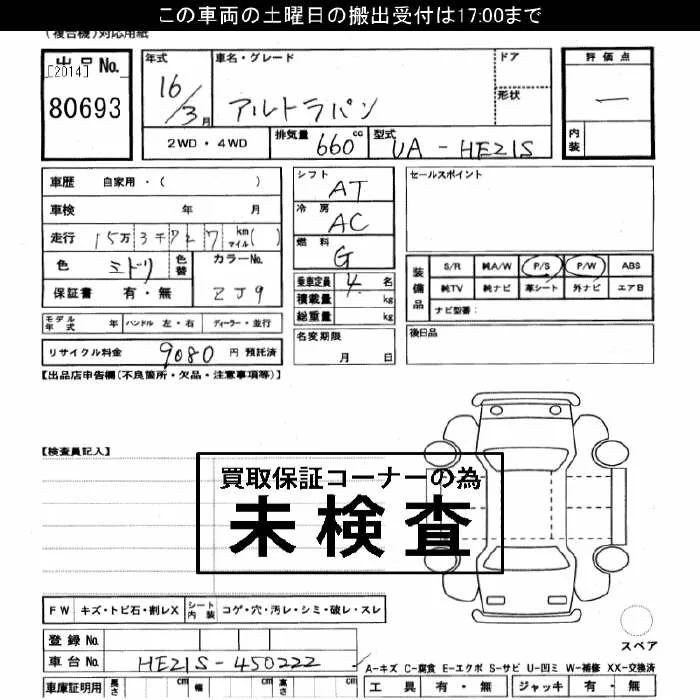 この車両の土曜日の搬出受付は17:00まで
(複合機)対応用紙
出品No.
[2014]
80693
年式
16/3月
車名・グレード
アルトラパン
ドア
形状
評価点
―
内装
2WD・4WD
排気量 660 cc
型式 UA-HE21S
車歴 自家用・( )
車検 年 月
走行 15万3千727 km マイル( )
色 ミドリ 色替 カラーNo.
保証書 有・無 ZJ9
シフト
AT
冷房
AC
燃料
G
乗車定員 4 名
積載量 kg
総重量 kg
セールスポイント
装備品
S/R 純A/W P/S P/W ABS
純TV 純ナビ 革シート 外ナビ エアB
ナビ型番:
モデル年式 年 ハンドル 左・右 ディーラー・並行
リサイクル料金 9080 円 預託済
名変期限
月 日
後日品
【出品店申告欄(不良箇所・欠品・注意事項等)】
【検査員記入】
買取保証コーナーの為
未検査
FW キズ・トビ石・割レX シート内装 コゲ・穴・汚レ・シミ・破レ・スレ
スペア
登録No.
車台No. HE21S-450222
A-キズ C-腐食 E-エクボ S-サビ U-凹ミ W-補修 XX-交換済
車庫証明用 長さ cm 幅 cm 高さ cm
工具 有・無 ジャッキ 有・無